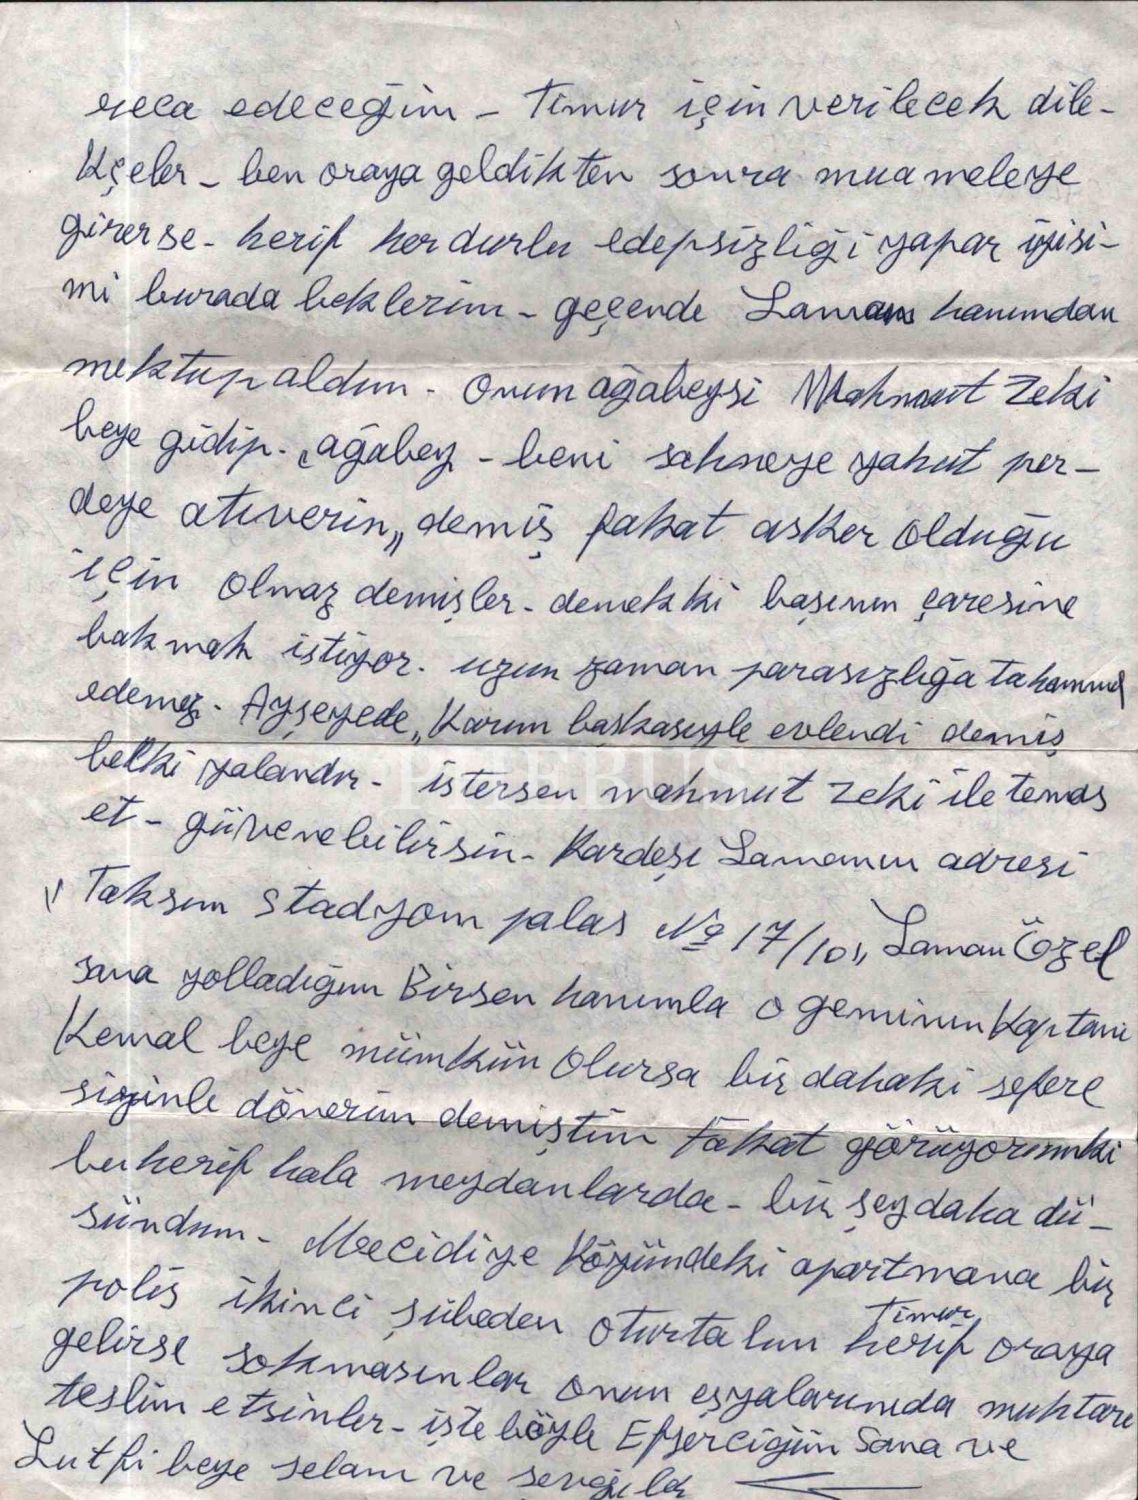 reca edeceğim - Timur için verilecek dile-
kçeler - ben oraya geldikten sonra muameleye
girerse - herif her durlu edepsizliği yapar iyisi-
mi burada beklerim - geçende Laman hanımdan
mektup aldım - onun ağabeysi Mahmut Zeki
beye gidip - „ağabey - beni sahneye yahut per-
deye atıverin„ demiş fakat asker olduğu
için olmaz demişler - demekki başının çaresine
bakmak istiyor. uzun zaman parasızlığa tahammul
edemez. Ayşeyede „Karım başkasıyle evlendi demiş
belki yalandır - istersen mahmut Zeki ile temas
et - güvenebilirsin - Kardeşi Lamanın adresi
„Taksım Stadyom palas № 17/10„ Laman Özel
sana yolladığım Birsen hanımla o geminin kaptanı
Kemal beye mümkün olursa bir dahaki sefere
sizinle dönerim demiştim fakat görüyorumki
bu herif hala meydanlarda - bir şey daha dü-
şündum - Mecidiye Köyündeki apartmana bir
polis ikinci şübeden oturtalım Timur
herif oraya
gelirse sokmasınlar onun eşyalarınıda muhtara
teslim etsinler - işte böyle Efserciğim Sana ve
Lutfi beye selam ve sevgiler
PHEBUS